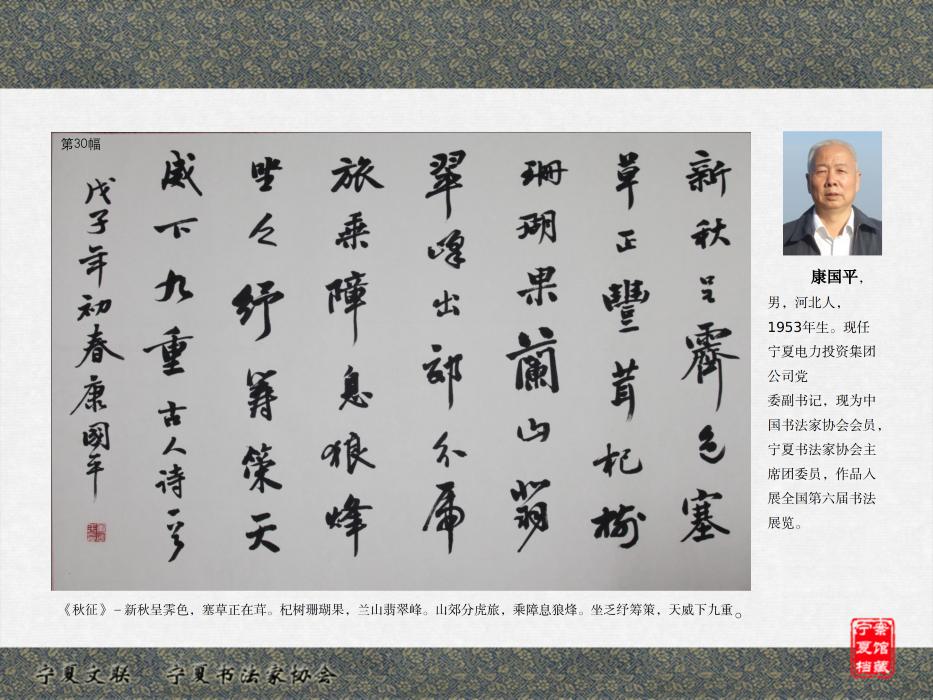 第30幅
新秋呈霽色塞
草正豐茸杞樹
珊瑚果蘭山翡
翠峰出郊分虎
旅乘障息狼烽
坐乏紓籌策天
威下九重古人詩一首
戊子年初春康國平
康国平，
男，河北人，
1953年生。现任
宁夏电力投资集团
公司党
委副书记，现为中
国书法家协会会员，
宁夏书法家协会主
席团委员，作品入
展全国第六届书法
展览。
《秋征》–新秋呈霁色，塞草正在茸。杞树珊瑚果，兰山翡翠峰。山郊分虎旅，乘障息狼烽。坐乏纾筹策，天威下九重。
宁夏文联 宁夏书法家协会
宁夏档
案馆藏